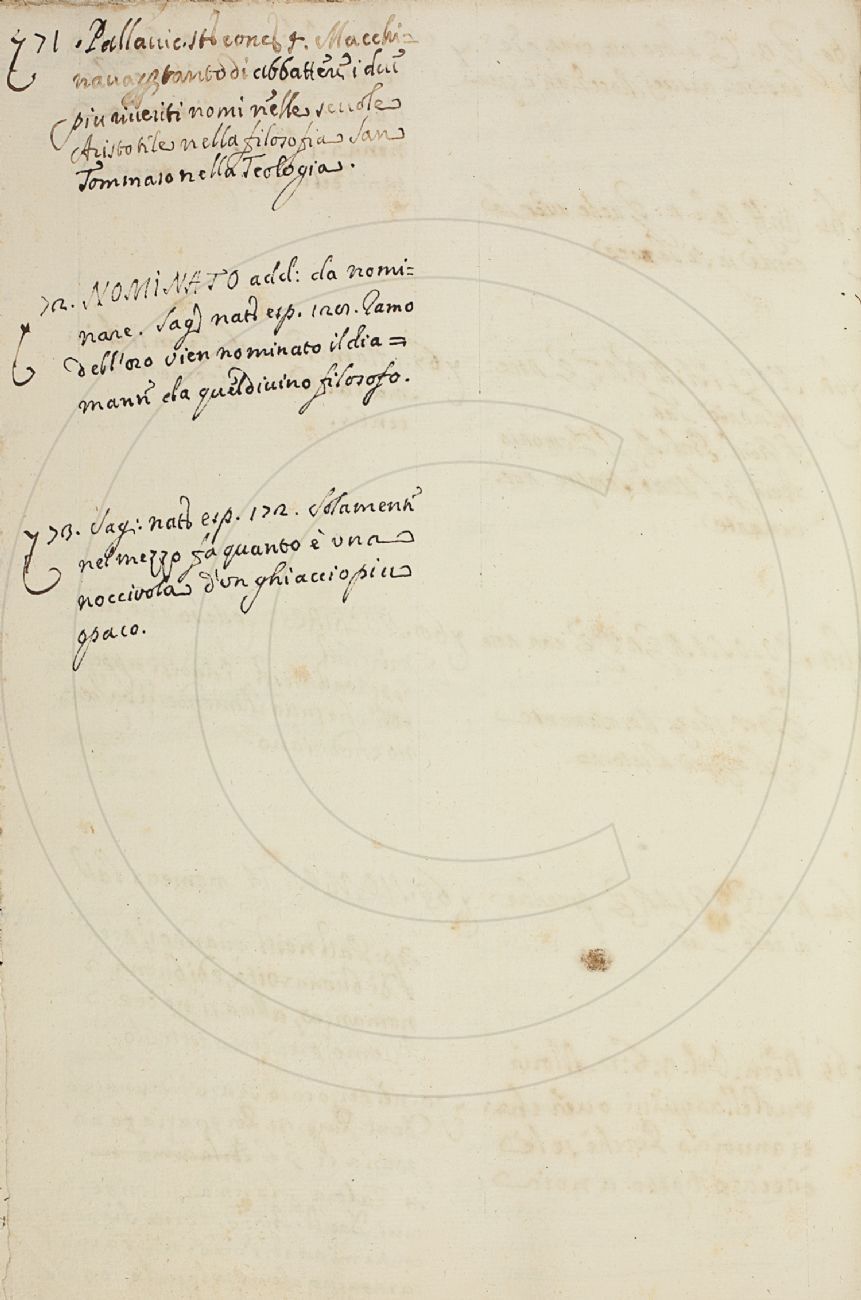 771. Pallavic. st: conc: 4. Macchi=
nava pertanto di abbattere i due
piu riveriti nomi nelle scuole
Aristotile nella filosofia San
Tommaso nella Teologia.
72. NOMINATO add: da nomi=
nare. Sag: nat: esp. Ramo
dell'oro vien nominato il dia=
mante da quel divino filosofo.
773. Sag: nat: esp. 172. Solamente
nel mezzo fa quanto è una
nocciuola d'un ghiaccio piu
opaco.